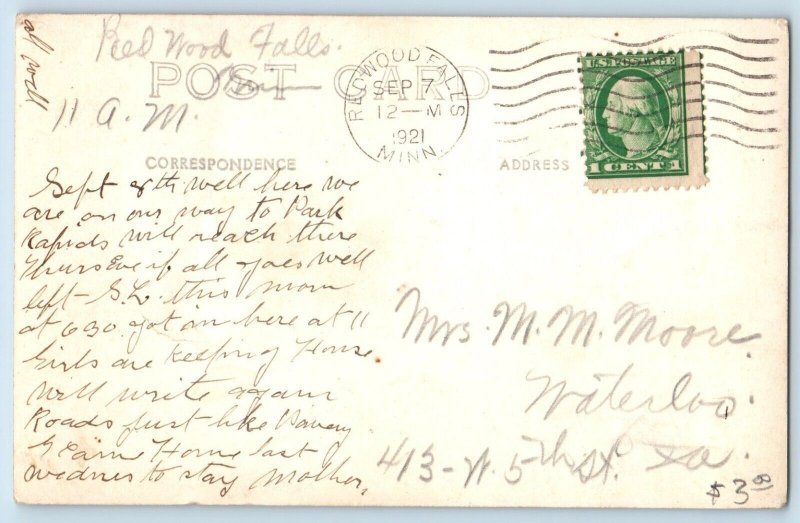 all well
Red Wood Falls.
POST CARD
Minn
11 A.M.
REDWOOD FALLS
SEP 7
12-M
1921
MINN.
U.S. POSTAGE
1 CENT 1
CORRESPONDENCE
ADDRESS
Sept 8th well here we
are on our way to Park
Rapids will reach there
Thurs Eve if all goes well
left S.L. this morn
at 630 got in here at 11
Girls are keeping House
will write again
Roads just like
Home last
wednes to stay Mother.
Mrs. M. M. Moore.
Waterloo.
413-W. 5th St. Ia.
$3